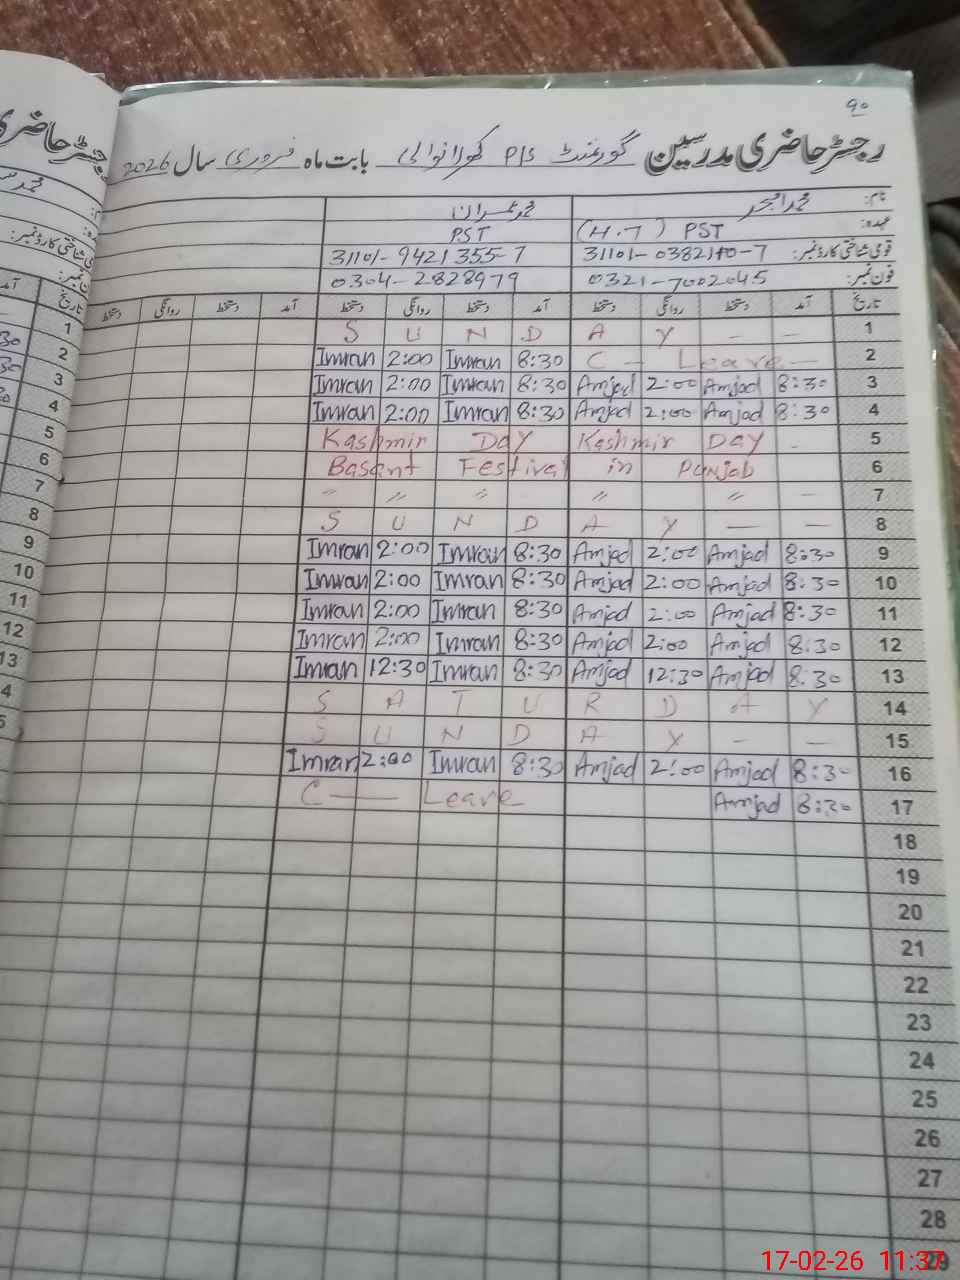 ۹۰
رجسٹر حاضری مدرسین گورنمنٹ P/S کھورانوالی بابت ماہ فروری سال 2026
نام: محمد امجد محمد عمران
عہدہ: (H.T) PST PST
قومی شناختی کارڈ نمبر: 31101-0382110-7 31101-9421355-7
فون نمبر: 0321-7002045 0304-2828979
تاریخ آمد دستخط روانگی دستخط آمد دستخط روانگی دستخط آمد دستخط روانگی دستخط
1 S U N D A Y - -
2 C - Leave - 8:30 Imran 2:00 Imran
3 8:30 Amjad 2:00 Amjad 8:30 Imran 2:00 Imran
4 8:30 Amjad 2:00 Amjad 8:30 Imran 2:00 Imran
5 Kashmir DAY Kashmir DAY -
6 Basant Festival in Punjab
7 " " " " " -
8 S U N D A Y - -
9 8:30 Amjad 2:00 Amjad 8:30 Imran 2:00 Imran
10 8:30 Amjad 2:00 Amjad 8:30 Imran 2:00 Imran
11 8:30 Amjad 2:00 Amjad 8:30 Imran 2:00 Imran
12 8:30 Amjad 2:00 Amjad 8:30 Imran 2:00 Imran
13 8:30 Amjad 12:30 Amjad 8:30 Imran 12:30 Imran
14 S A T U R D A Y
15 S U N D A Y - -
16 8:30 Amjad 2:00 Amjad 8:30 Imran 2:00 Imran
17 8:30 Amjad C - Leave
18
19
20
21
22
23
24
25
26
27
28
29
17-02-26 11:37